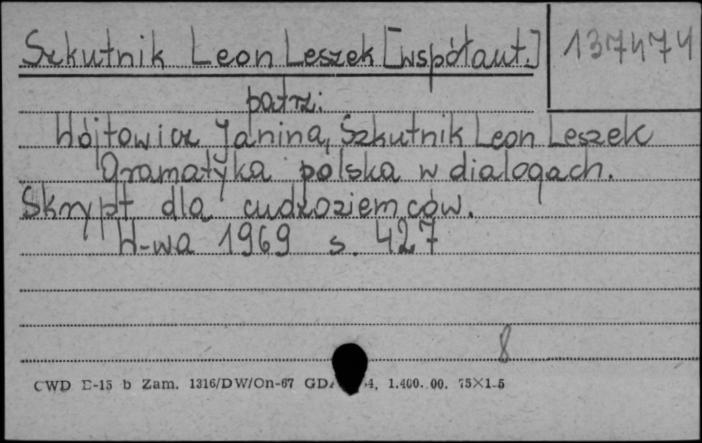 Szkutnik Leon Leszek [współaut.]
137474
patrz:
Wójtowicz Janina, Szkutnik Leon Leszek
Dramatyka polska w dialogach.
Skrypt dla cudzoziemców.
W-wa 1969 s. 427
8
CWD E-15 b Zam. 1316/DW/On-67